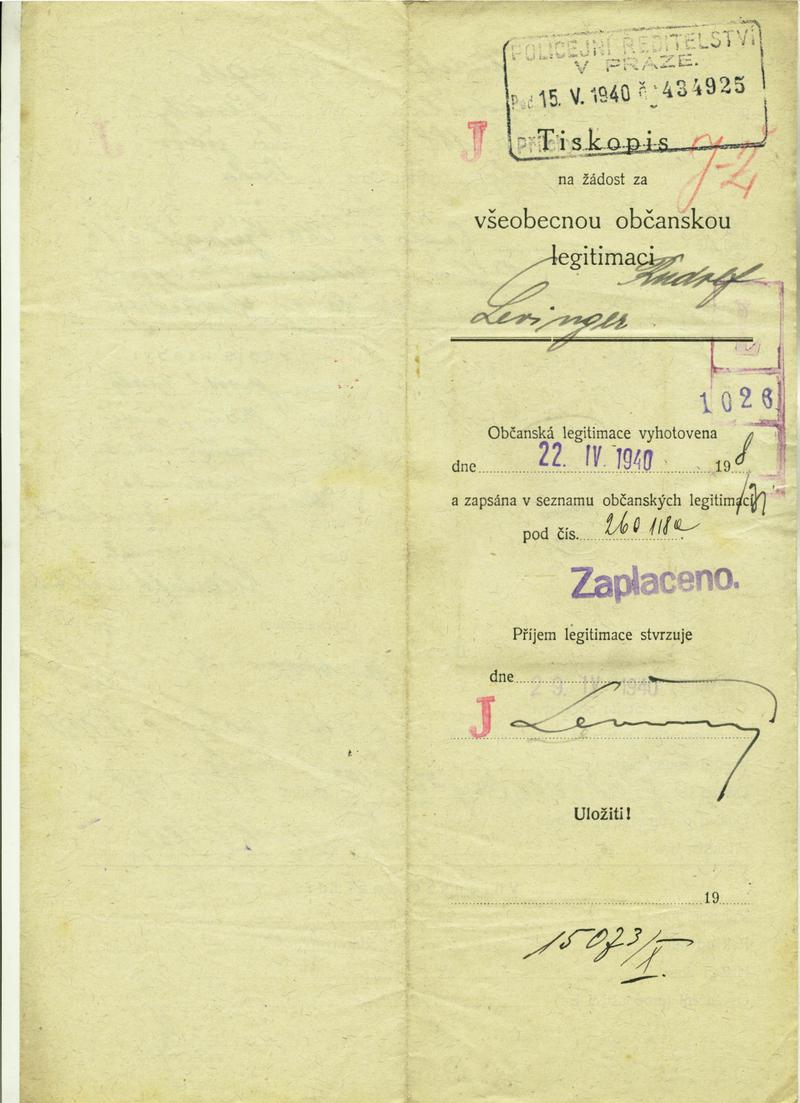 POLICEJNÍ ŘEDITELSTVÍ
V PRAZE.
15. V. 1940 č. 434925
J
Tiskopis
na žádost za
všeobecnou občanskou
legitimaci
Rudolf
Levinger
1026
Občanská legitimace vyhotovena
dne 22. IV. 1940 19
a zapsána v seznamu občanských legitimací
pod čís. 260118a
Zaplaceno.
Příjem legitimace stvrzuje
dne 29. IV. 1940
J
Uložiti!
19
15073/X.